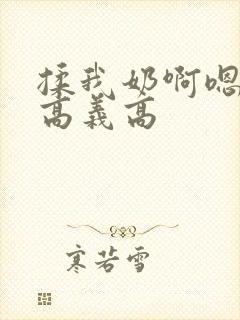 揉我奶啊嗯
高義高
寒若雪